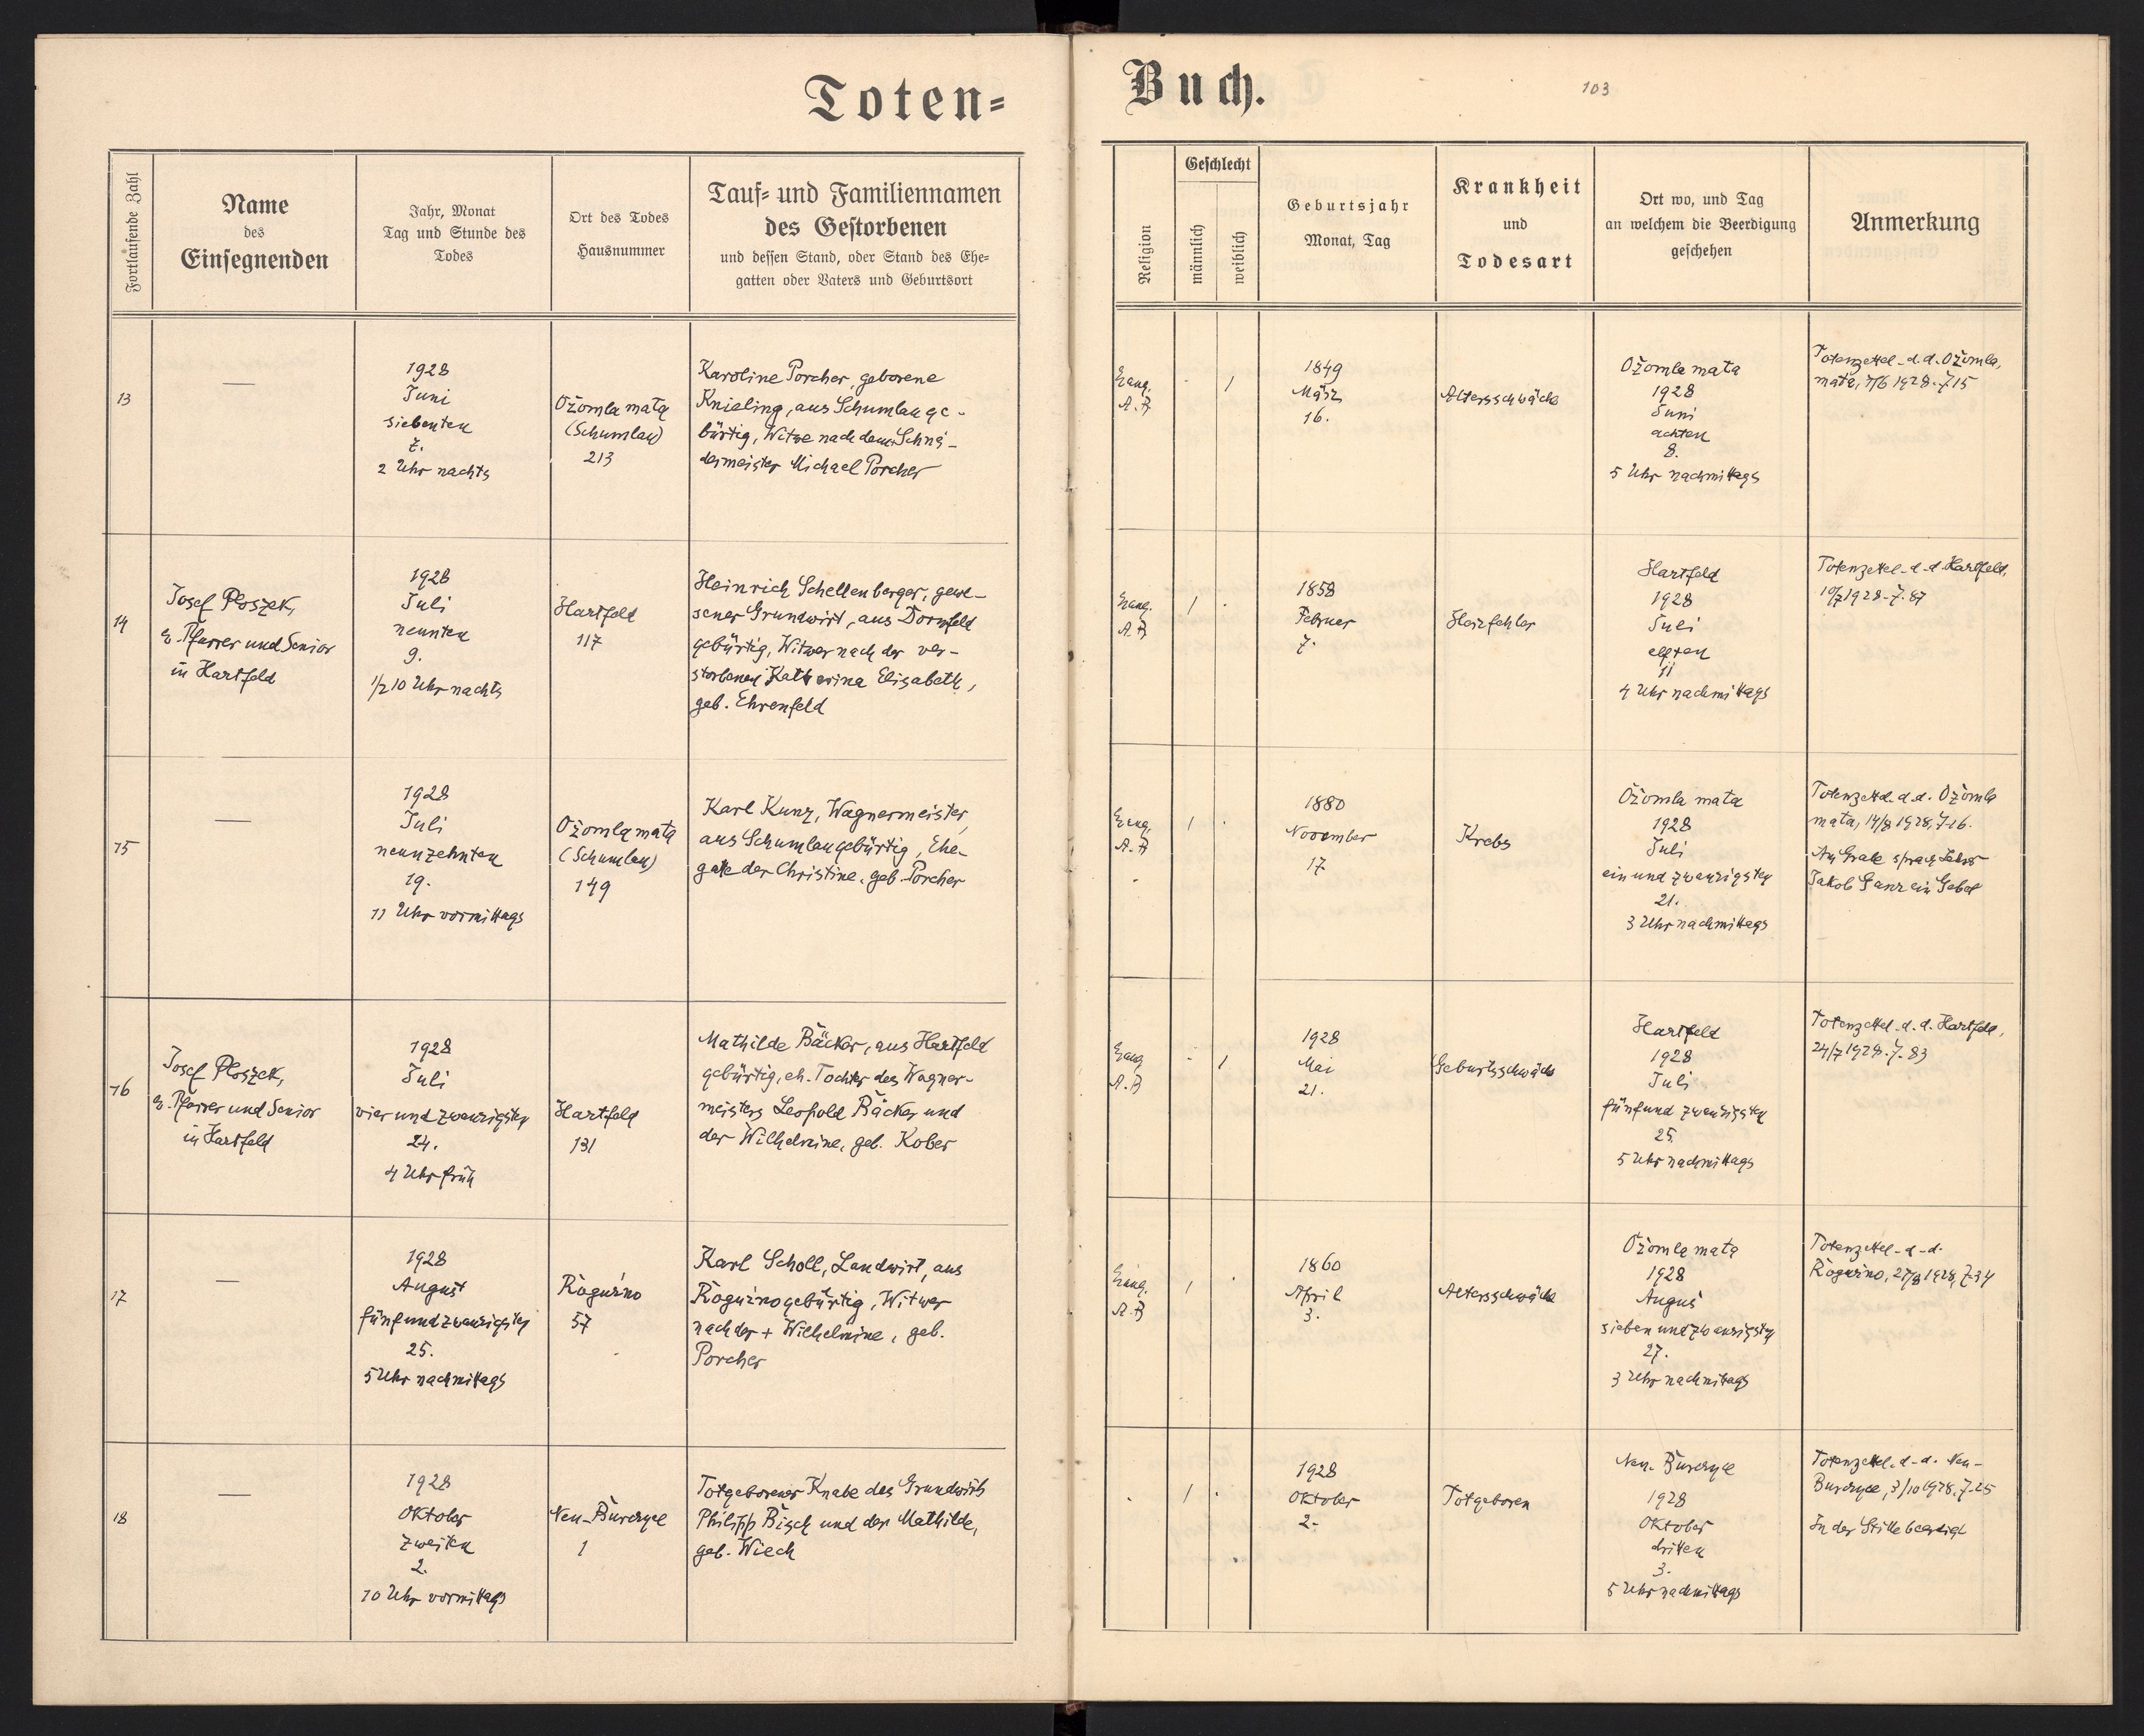 Toten=
Buch.
103
Fortlaufende Zahl
Name
des
Einsegnenden
Jahr, Monat
Tag und Stunde des
Todes
Ort des Todes
Hausnummer
Tauf= und Familiennamen
des Gestorbenen
und dessen Stand, oder Stand des Ehe=
gatten oder Vaters und Geburtsort
Religion
Geschlecht
männlich
weiblich
Geburtsjahr
Monat, Tag
Krankheit
und
Todesart
Ort wo, und Tag
an welchem die Beerdigung
geschehen
Anmerkung
13
—
1928
Juni
siebenten
7.
2 Uhr nachts
Ożomla mała
(Schumlau)
213
Karoline Porcher, geborene
Knieling, aus Schumlau ge-
bürtig, Witwe nach dem Schnei-
dermeister Michael Porcher
Evang.
A.B
1
1849
März
16.
Altersschwäche
Ożomla mała
1928
Juni
achten
8.
5 Uhr nachmittags
Totenzettel d.d. Ożomla,
mała, 7/6 1928. Z. 15
14
Josef Ploszek,
ev. Pfarrer und Senior
in Hartfeld
1928
Juli
neunten
9.
1/2 10 Uhr nachts
Hartfeld
117
Heinrich Schellenberger, gewe-
sener Grundwirt, aus Dornfeld
gebürtig, Witwer nach der ver-
storbenen Katharina Elisabeth,
geb. Ehrenfeld
Evang.
A.B
1
1858
Februar
7.
Herzfehler
Hartfeld
1928
Juli
elften
11
4 Uhr nachmittags
Totenzettel d.d. Hartfeld,
10/7 1928. Z. 87
15
—
1928
Juli
neunzehnten
19.
11 Uhr vormittags
Ożomla mała
(Schumlau)
149
Karl Kunz, Wagnermeister,
aus Schumlau gebürtig, Ehe-
gatte der Christine, geb. Porcher
Evang.
A.B
1
1880
November
17
Krebs
Ożomla mała
1928
Juli
ein und zwanzigsten
21.
3 Uhr nachmittags
Totenzettel d.d. Ożomla
mała, 14/8 1928, Z. 16.
Am Grabe sprach Lehrer
Jakob Ganz ein Gebet
16
Josef Ploszek,
ev. Pfarrer und Senior
in Hartfeld
1928
Juli
vier und zwanzigsten
24.
4 Uhr früh
Hartfeld
131
Mathilde Bäcker, aus Hartfeld
gebürtig, eh. Tochter des Wagner-
meisters Leopold Bäcker und
der Wilhelmine, geb. Kober
Evang.
A.B
1
1928
Mai
21.
Geburtsschwäche
Hartfeld
1928
Juli
fünfund zwanzigsten
25.
5 Uhr nachmittags
Totenzettel d.d. Hartfeld,
24/7 1928. Z. 83
17
—
1928
August
fünfundzwanzigsten
25.
5 Uhr nachmittags
Roguźno
57
Karl Scholl, Landwirt, aus
Roguźno gebürtig, Witwer
nach der + Wilhelmine, geb.
Porcher
Evang.
A.B
1
1860
April
3.
Altersschwäche
Ożomla mała
1928
Augus
sieben und zwanzigsten
27.
3 Uhr nachmittags
Totenzettel d-d.
Roguźno, 27/8 1928, Z. 34
18
—
1928
Oktober
zweiten
2.
10 Uhr vormittags
Neu-Burczyce
1
Totgeborener Knabe des Grundwirts
Philipp Bisch und der Mathilde,
geb. Wiech
1
1928
Oktober
2.
Totgeboren
Neu-Burczyce
1928
Oktober
dritten
3.
5 Uhr nachmittags
Totenzettel d-d. Neu-
Burczyce, 3/10 1928. Z. 25
In der Stille beerdigt